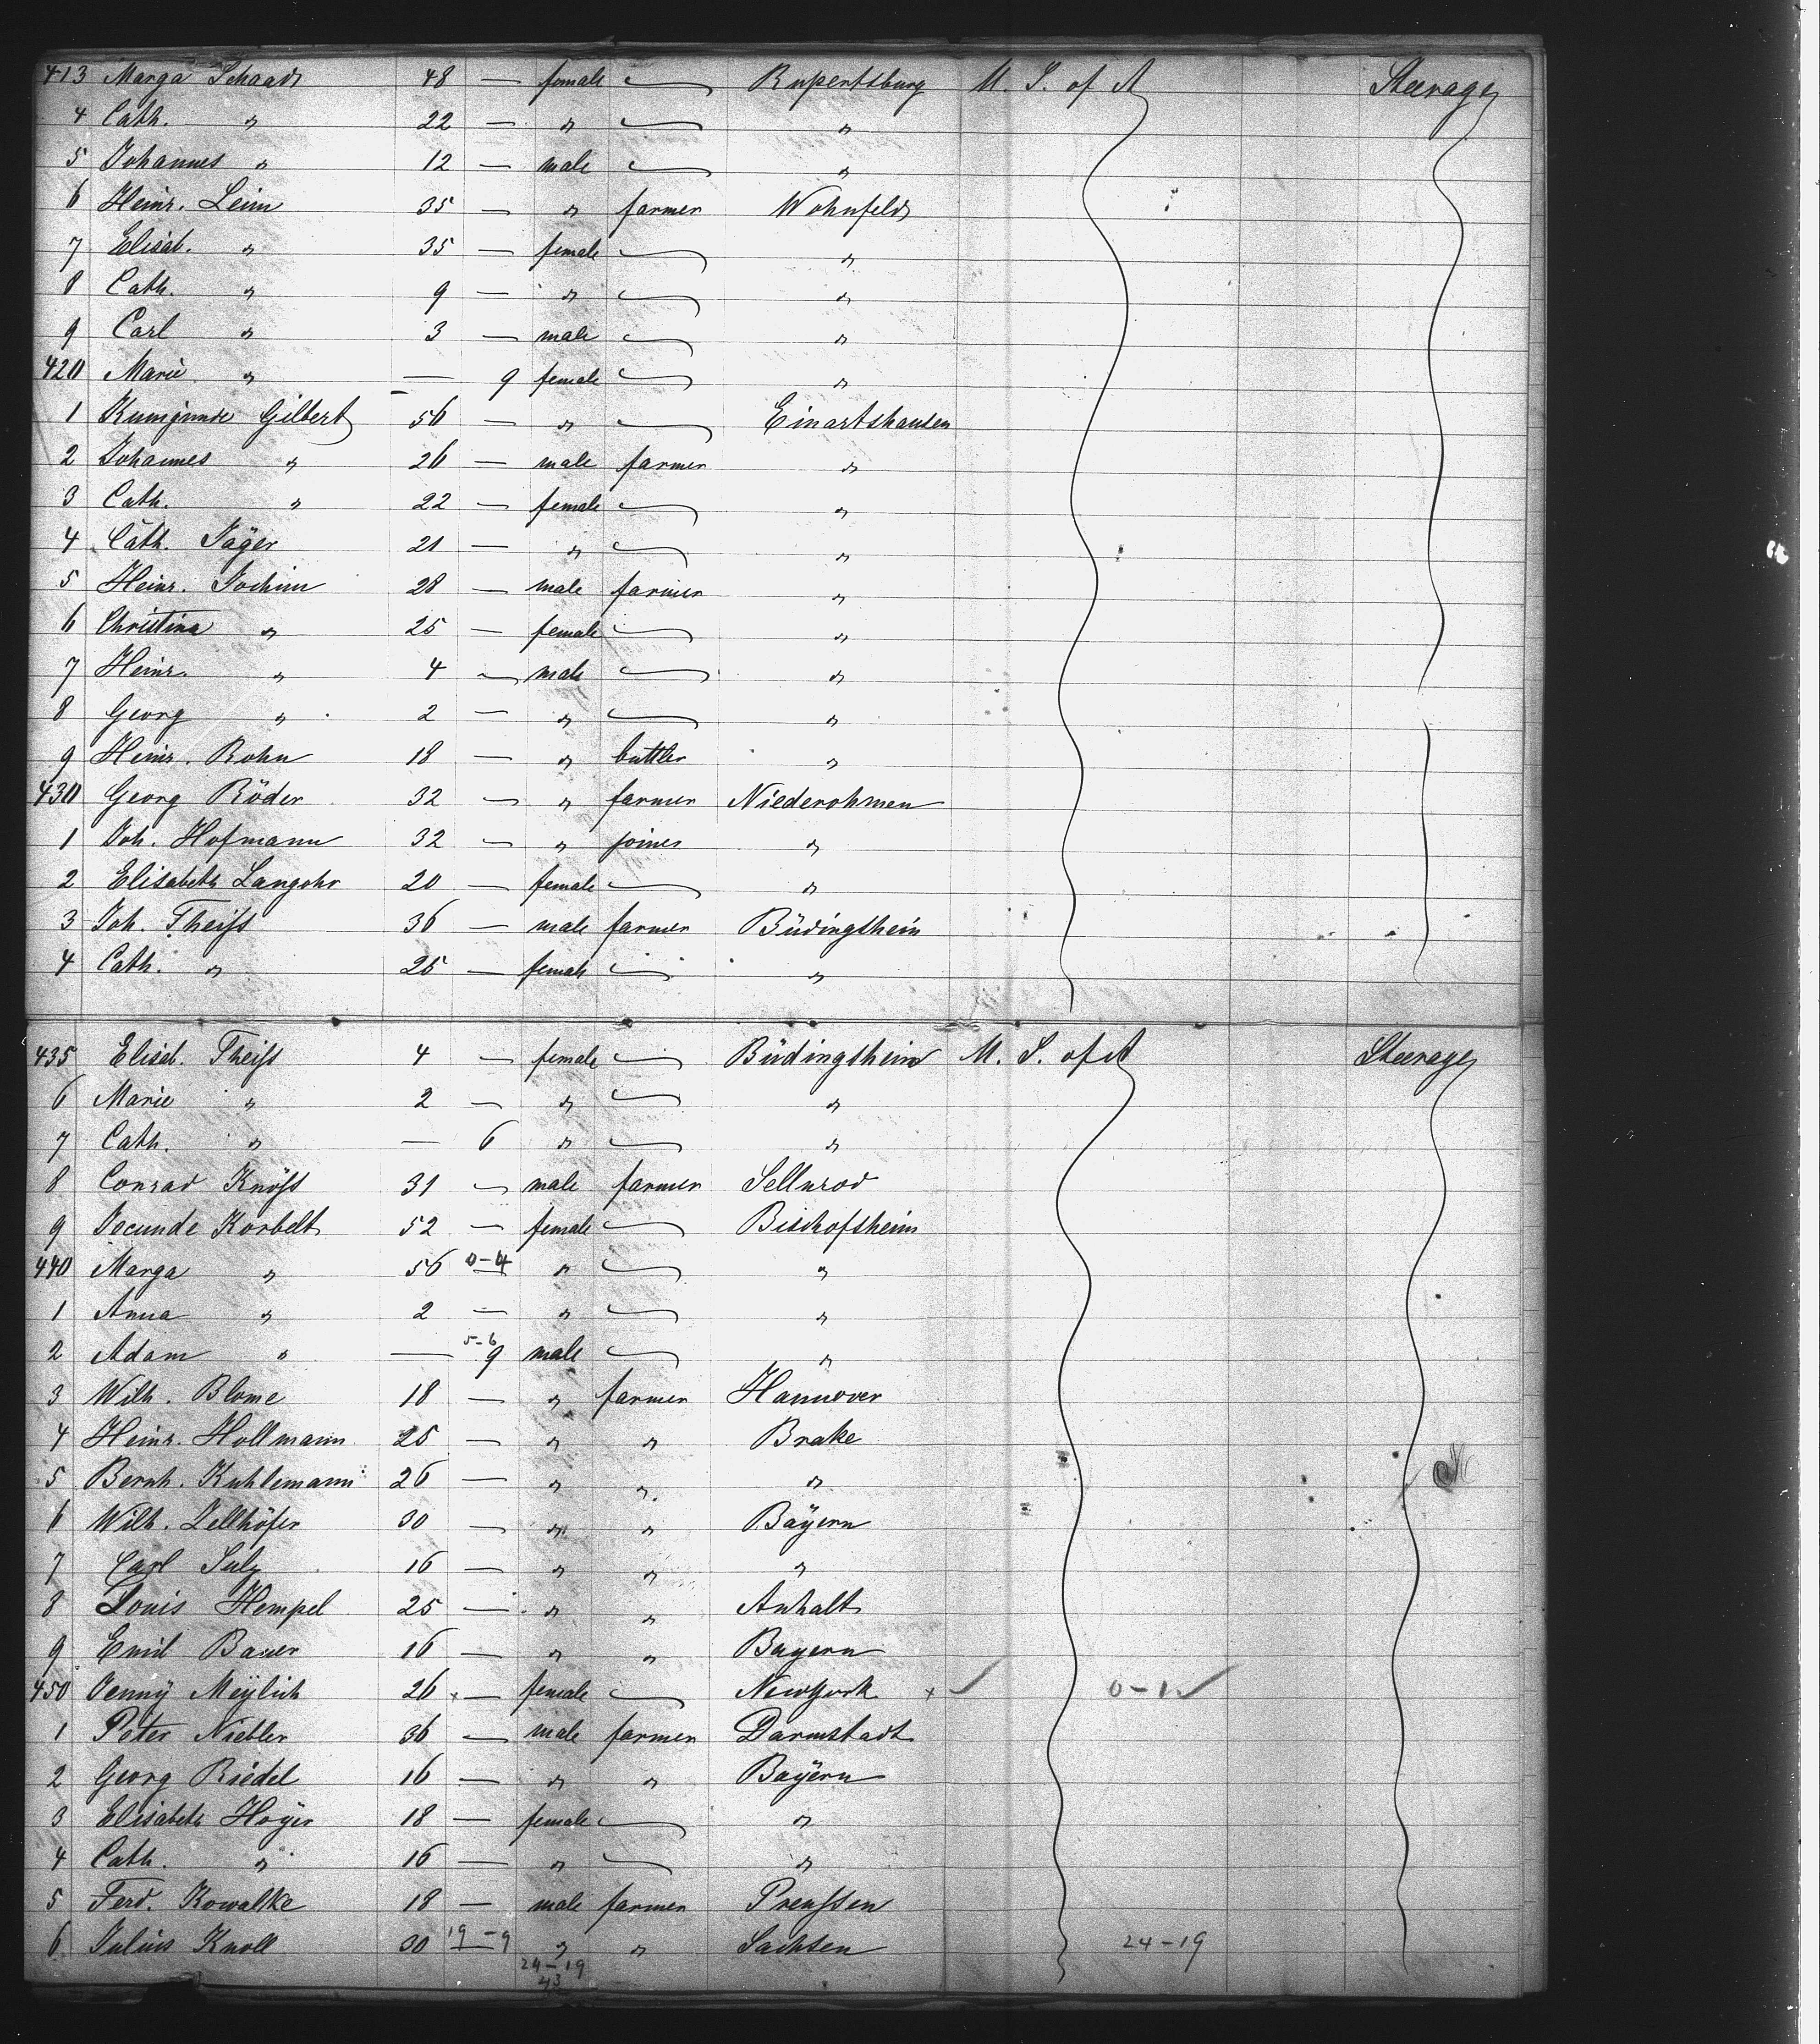 413 Marga Schaad 48 — female — Rupertsburg U. S. of A Steerage
4 Cath. " 22 — " — "
5 Johannes " 12 — male — "
6 Heinr. Leim 35 — " farmer Wohnfeld
7 Elisab. " 35 — female — "
8 Cath. " 9 — " — "
9 Carl " 3 — male — "
420 Marie " — 9 female — "
1 Kunigunde Gilbert 56 — " — Einartshausen
2 Johannes " 26 — male farmer "
3 Cath. " 22 — female — "
4 Cath. Jäger 21 — " — "
5 Heinr. Jochim 28 — male farmer "
6 Christina " 25 — female — "
7 Heinr. " 4 — male — "
8 Georg " 2 — " — "
9 Heinr. Rohn 18 — " buttler "
430 Georg Röder 32 — " farmer Niederohmen
1 Joh. Hofmann 32 — " joiner "
2 Elisabeth Langohr 20 — female — "
3 Joh. Theiss 36 — male farmer Büdingsheim
4 Cath. " 25 — female — "
435 Elisab. Theiss 4 — female — Büdingsheim U. S. of A Steerage
6 Marie " 2 — " — "
7 Cath. " — 6 " — "
8 Conrad Knöss 31 — male farmer Sellnrod
9 Jocunde Korbelt 52 — female — Bischofsheim
440 Marga " 56 0-4 " — "
1 Anna " 2 — " — "
2 Adam " — 5-6 9 male — "
3 Wilh. Blome 18 — " farmer Hannover
4 Heinr. Hollmann 25 — " " Brake
5 Bernh. Kuhlemann 26 — " " "
6 Wilh. Zellhöfer 30 — " " Bayern
7 Carl Sulz 16 — " " "
8 Louis Hempel 25 — " " Anhalt
9 Emil Bauer 16 — " " Bayern
450 Jenny Meylich 26 x — female — NewYork x ✓ 0-1 ✓
1 Peter Niebler 36 — male farmer Darmstadt
2 Georg Riedel 16 — " " Bayern
3 Elisabeth Hoyer 18 — female — "
4 Cath. " 16 — " — "
5 Ferd. Kowalke 18 — male farmer Preussen
6 Julius Knoll 30 19-9 " " Sachsen 24-19
24-19
43